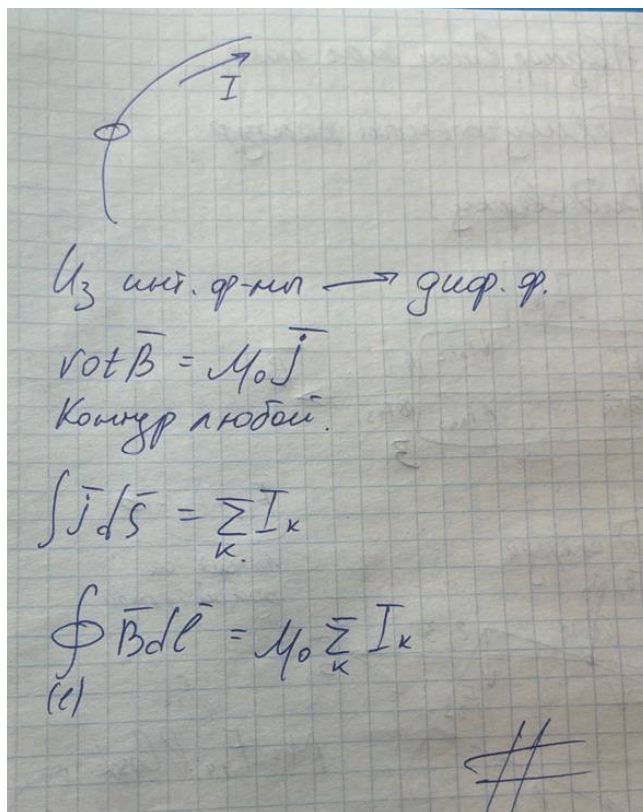 I
Из инт. ф-мы → диф. ф.
rot B̄ = μ₀ j̄
Контур любой.
∫ j̄ d s̄ = Σ_k I_k
∮_(l) B̄ d l̄ = μ₀ Σ_k I_k